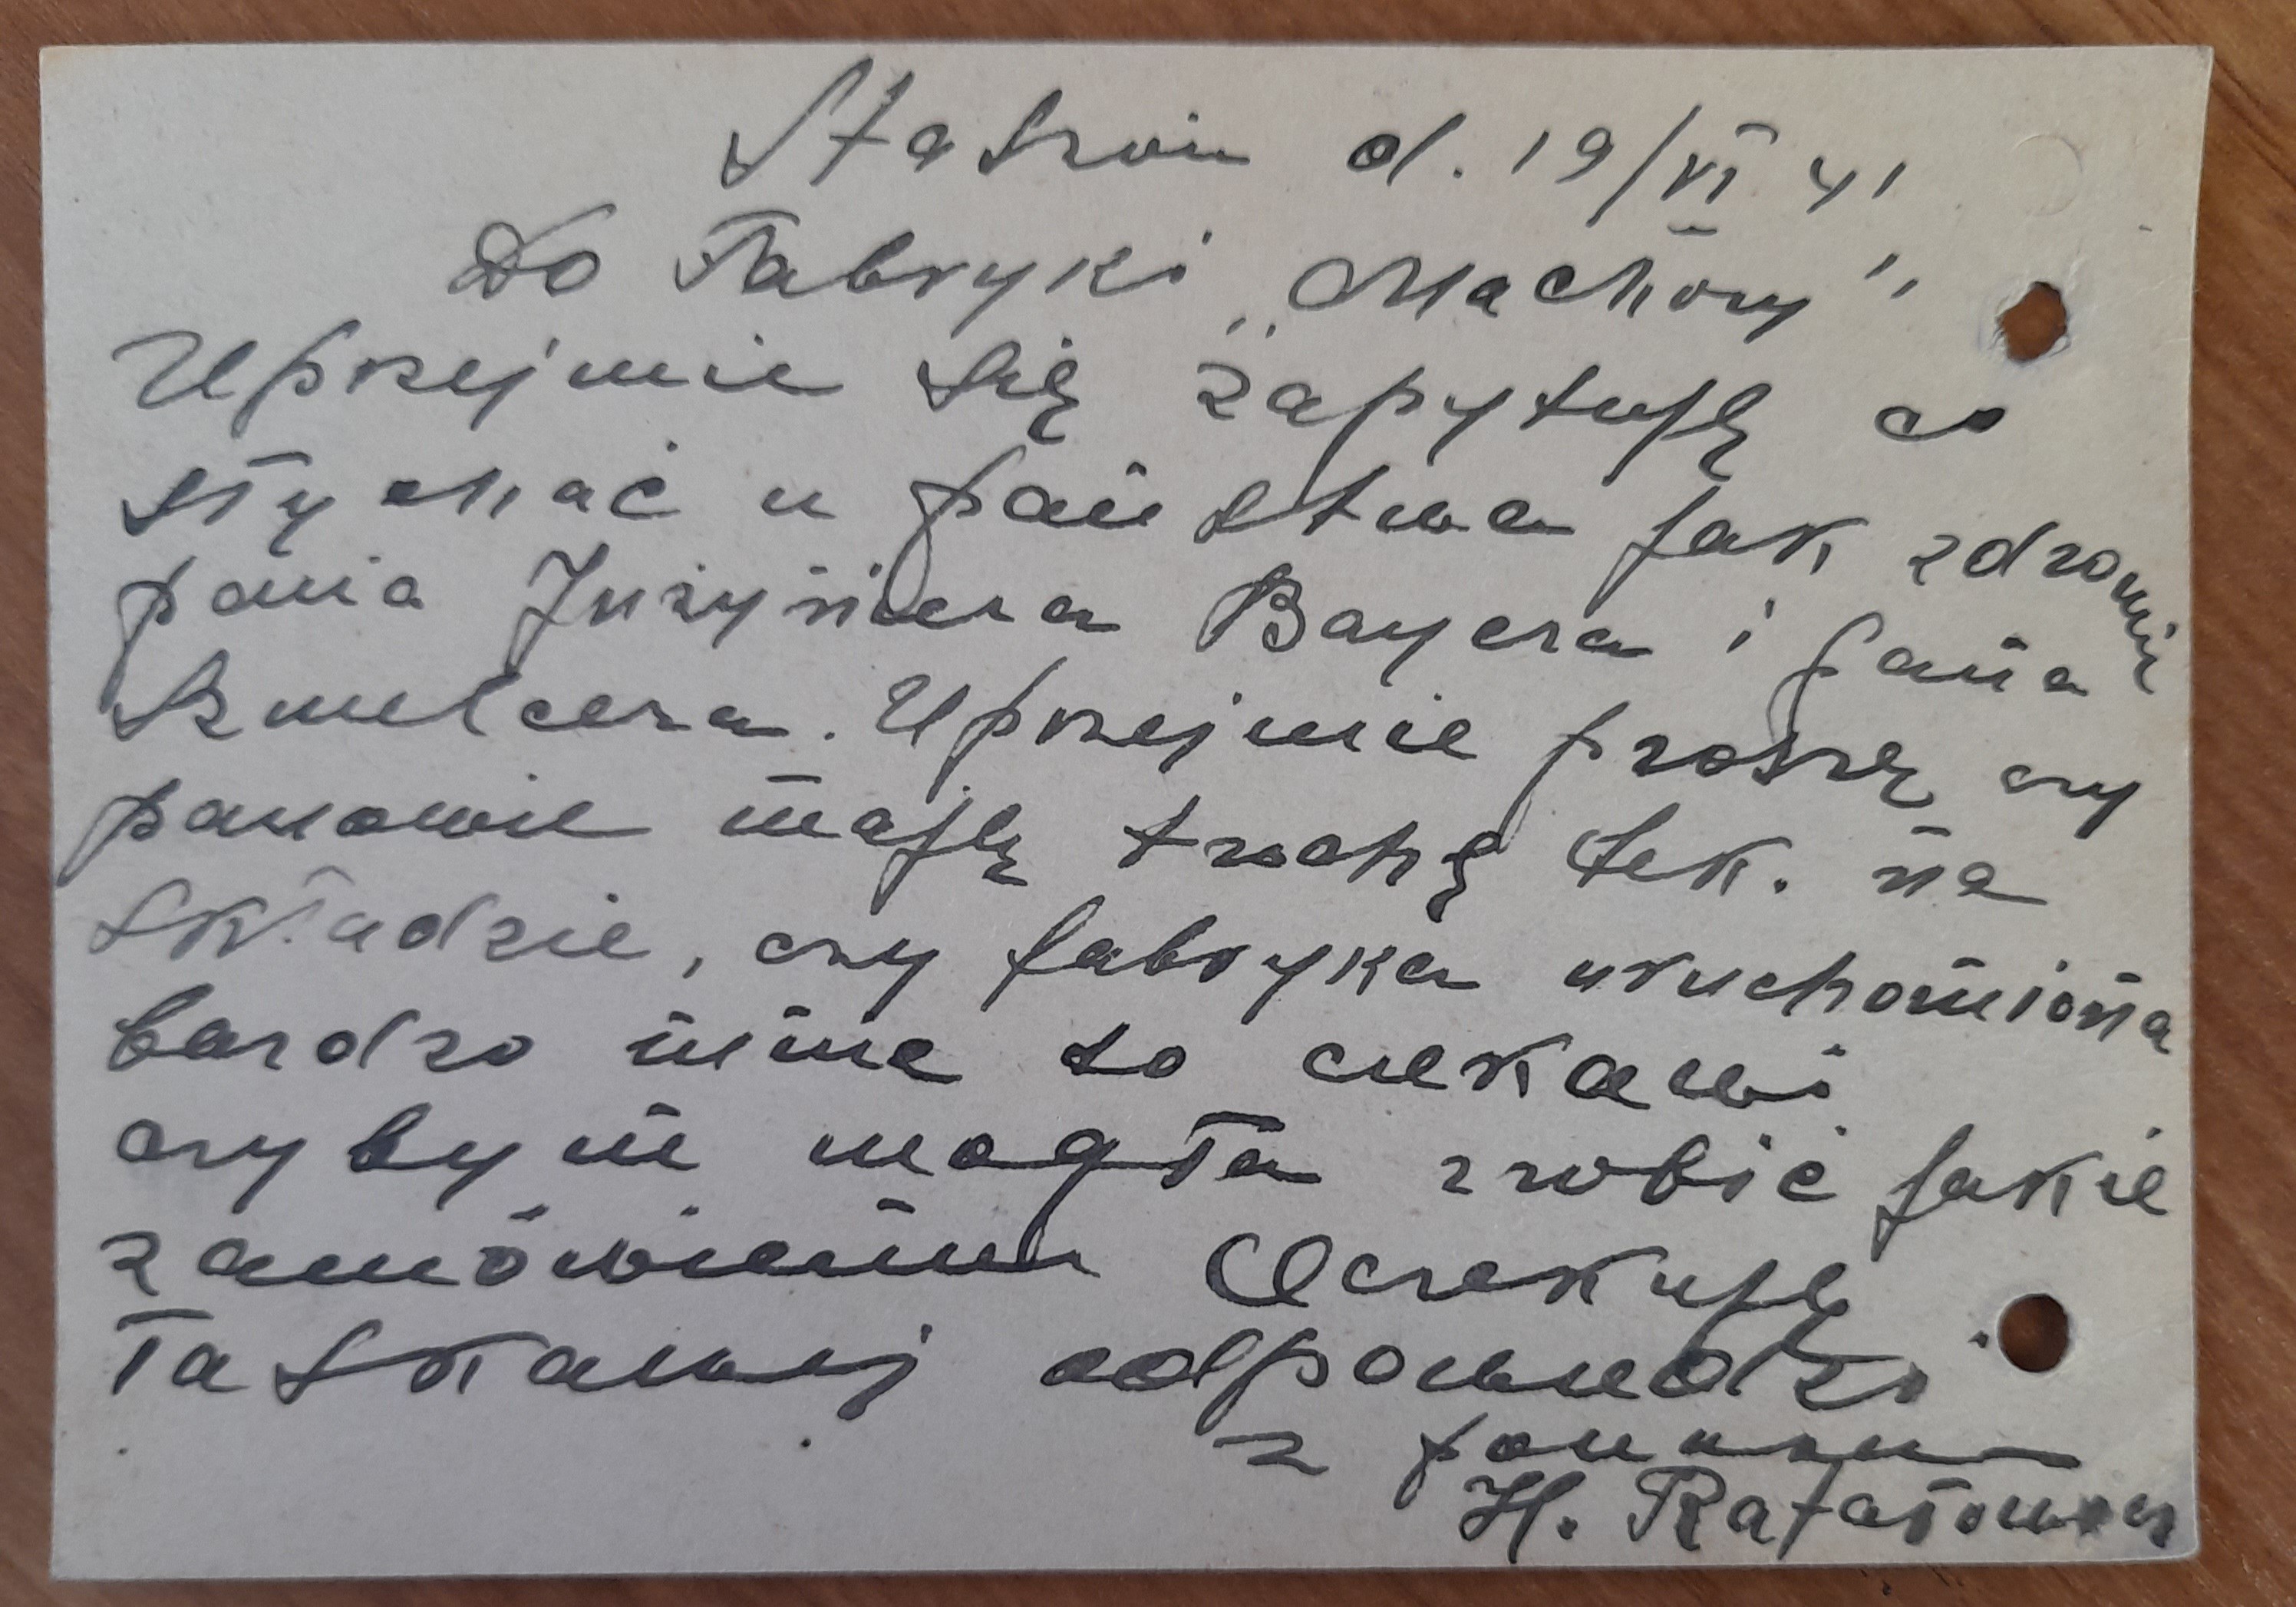 Staszów d. 19/VI 41
Do Fabryki „Machory"
Uprzejmie się zapytuję co
słychać u państwa jak zdrowie
pana Inżyniera Bayera i pana
Szmelcera. Uprzejmie proszę czy
panowie mają trochę tek. na
składzie, czy fabryka uruchomiona
bardzo mnie to ciekawi
czybym mogła zrobić jakie
zamówienie Oczekuję
łaskawej odpowiedzi
z poważaniem
H.